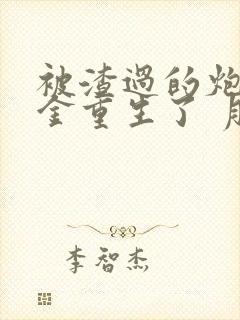 被渣过的炮
全重生了
李智杰